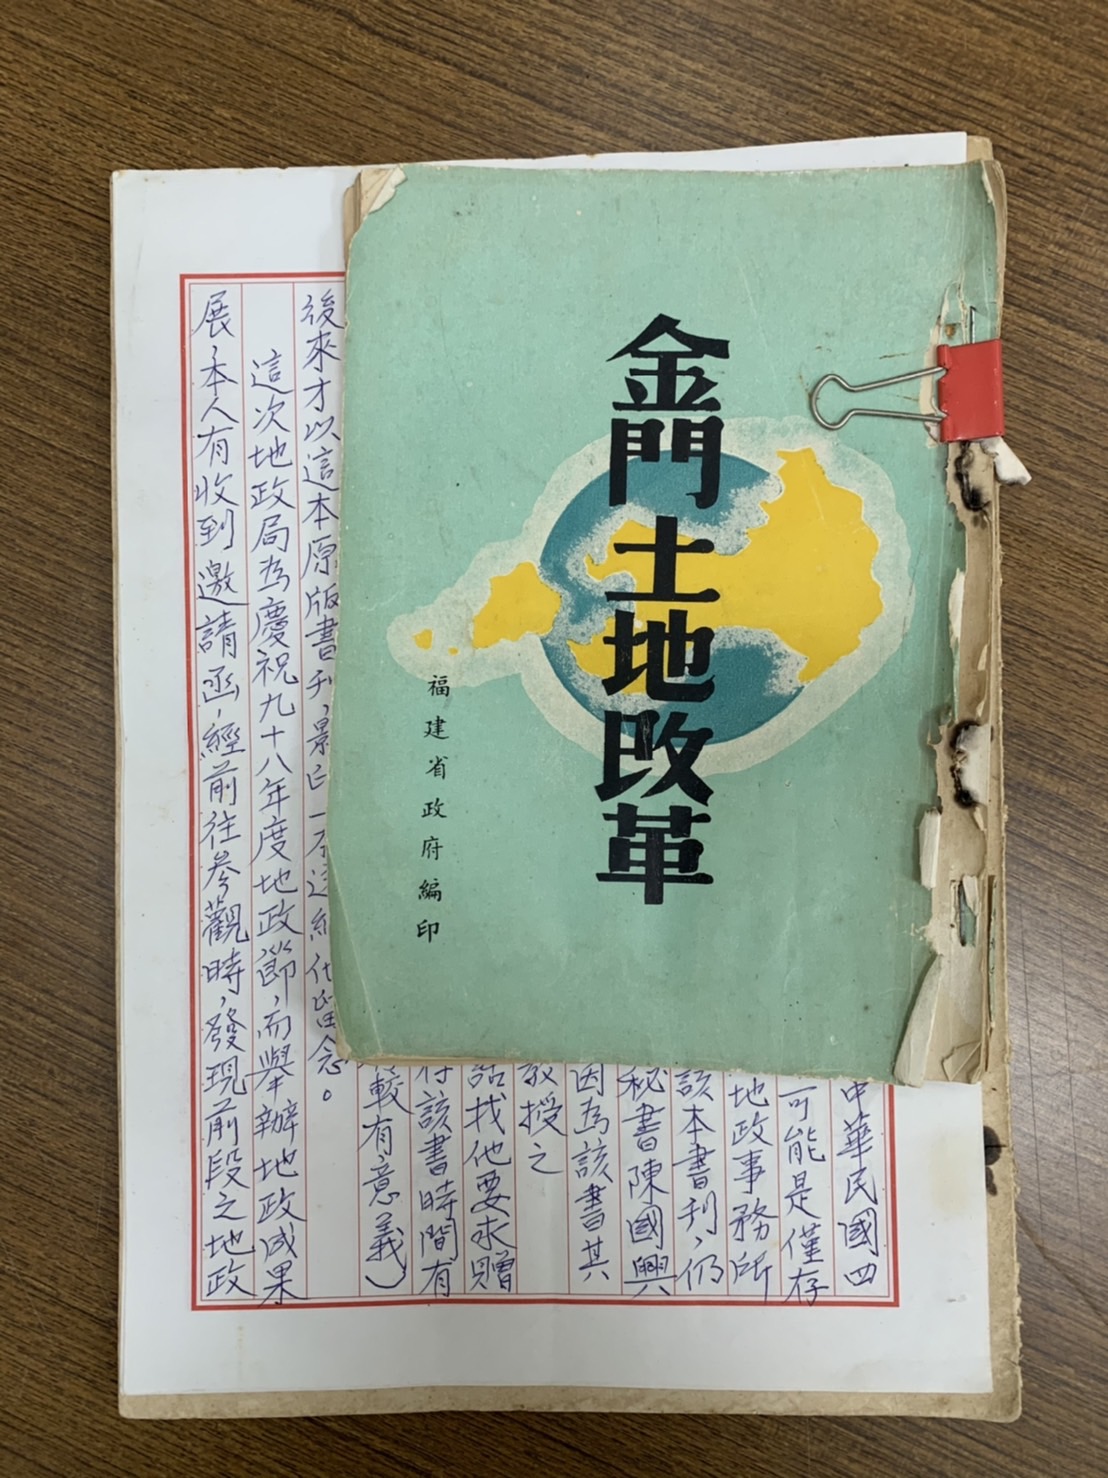 金門土地改革
福建省政府編印
中華民國四
可能是僅存
地政事務所
該本書刊,仍
秘書陳國興
因為該書其
教授之
話找他要求贈
得該書時間有
較有意義)
後來才以這本原版書刊,影印一本送紀代留念。
這次地政局為慶祝九十八年度地政節,而舉辦地政成果
展,本人有收到邀請函,經前往參觀時,發現前段之地政